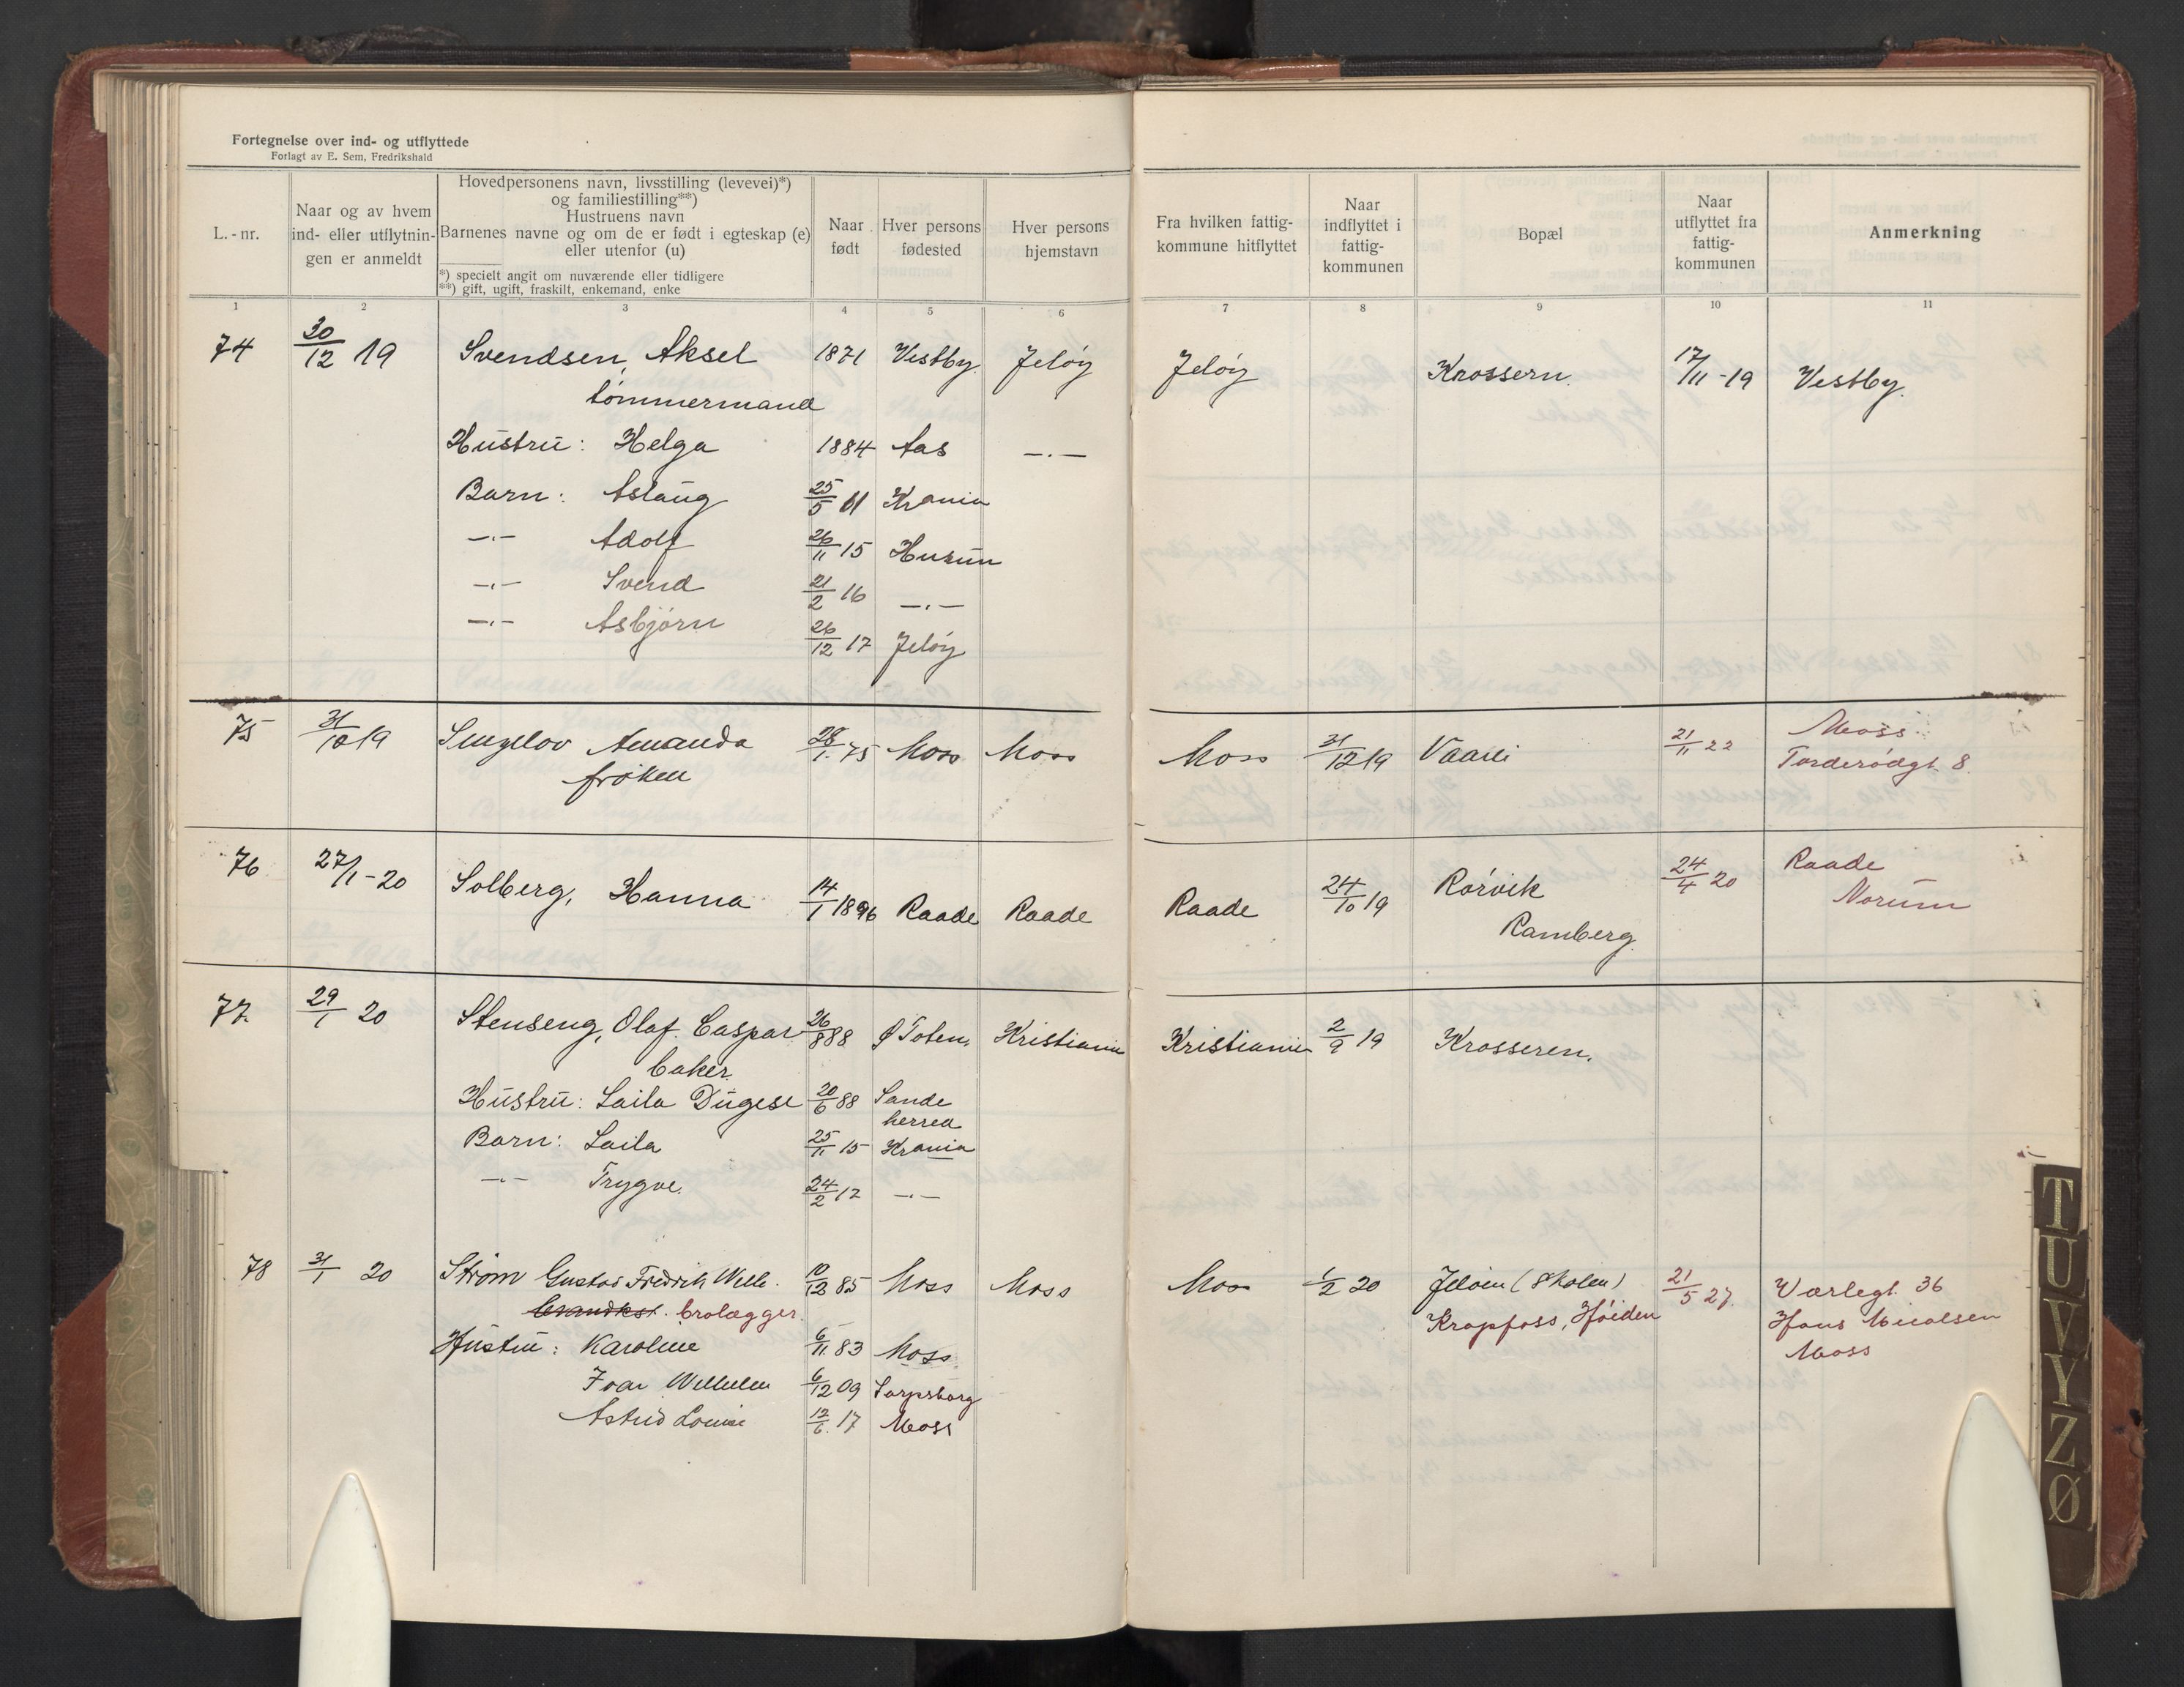 Fortegnelse over ind- og utflyttede
Forlagt av E. Sem, Fredrikshald
L.-nr.
Naar og av hvem
ind- eller utflytnin-
gen er anmeldt
Hovedpersonens navn, livsstilling (levevei)*)
og familiestilling**)
Hustruens navn
Barnenes navne og om de er født i egteskap (e)
eller utenfor (u)
*) specielt angit om nuværende eller tidligere
**) gift, ugift, fraskilt, enkemand, enke
Naar
født
Hver persons
fødested
Hver persons
hjemstavn
Fra hvilken fattig-
kommune hitflyttet
Naar
indflyttet i
fattig-
kommunen
Bopæl
Naar
utflyttet fra
fattig-
kommunen
Anmerkning
1 2 3 4 5 6 7 8 9 10 11
74 30/12 19 Svendsen, Aksel 1871 Vestby Jeløy Jeløy Krossern. 17/11-19 Vestby.
tømmermand
Hustru: Helga 1884 Aas —.—
Barn: Aslaug 25/5 11 Krania
—.— Adolf 26/11 15 Hurum
—.— Svend 21/2 16 —.—
—.— Asbjørn 26/12 17 Jeløy
75 31/10 19 Amanda 28/1. 75 Moss Moss Moss 31/12 19 21/11 22 Moss
frøken Torderødgt. 8.
76 27/1-20 Solberg, Hanna 14/1 1896 Raade Raade Raade 24/10 19 Rørvik 24/4 20 Raade
Ramberg. Norum
77. 29/1 20 Stenseng, Olaf Caspar 26/8 88 Ø Toten Kristiania Kristiania 2/9 19 Krosseren.
baker
Hustru: Laila Dugese 20/6 88 Sande
herred
Barn: Laila 25/11 15 Krania
—.— Trygve. 24/2 17 —.—
78 31/1 20 Strøm Gustav Fredrik Wilh. 10/12 85 Moss Moss Moss 1/2 20 Jeløen (Skolen) 21/5 27. Værlegt. 36
brandkst. brolægger. Krapfoss, Høiden Hans Nicolsen
Hustru: Karoline 6/11 83 Moss. Moss
Ivar Wilhelm 6/12 09 Sarpsborg
Astrid Louise 12/6. 17 Moss
T
U
V
Y
Z
Ø